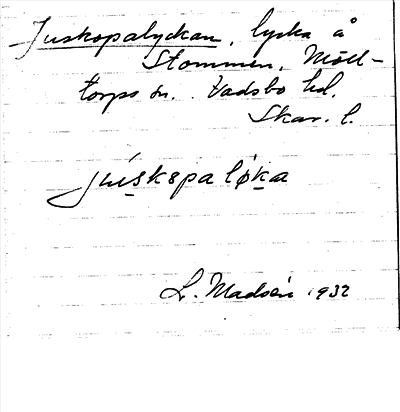 Juskopalyckan, lycka å
Stommen, Möll-
torps sn. Vadsbo hd.
Skar. l.
juskspaløka
L. Madsén 1932